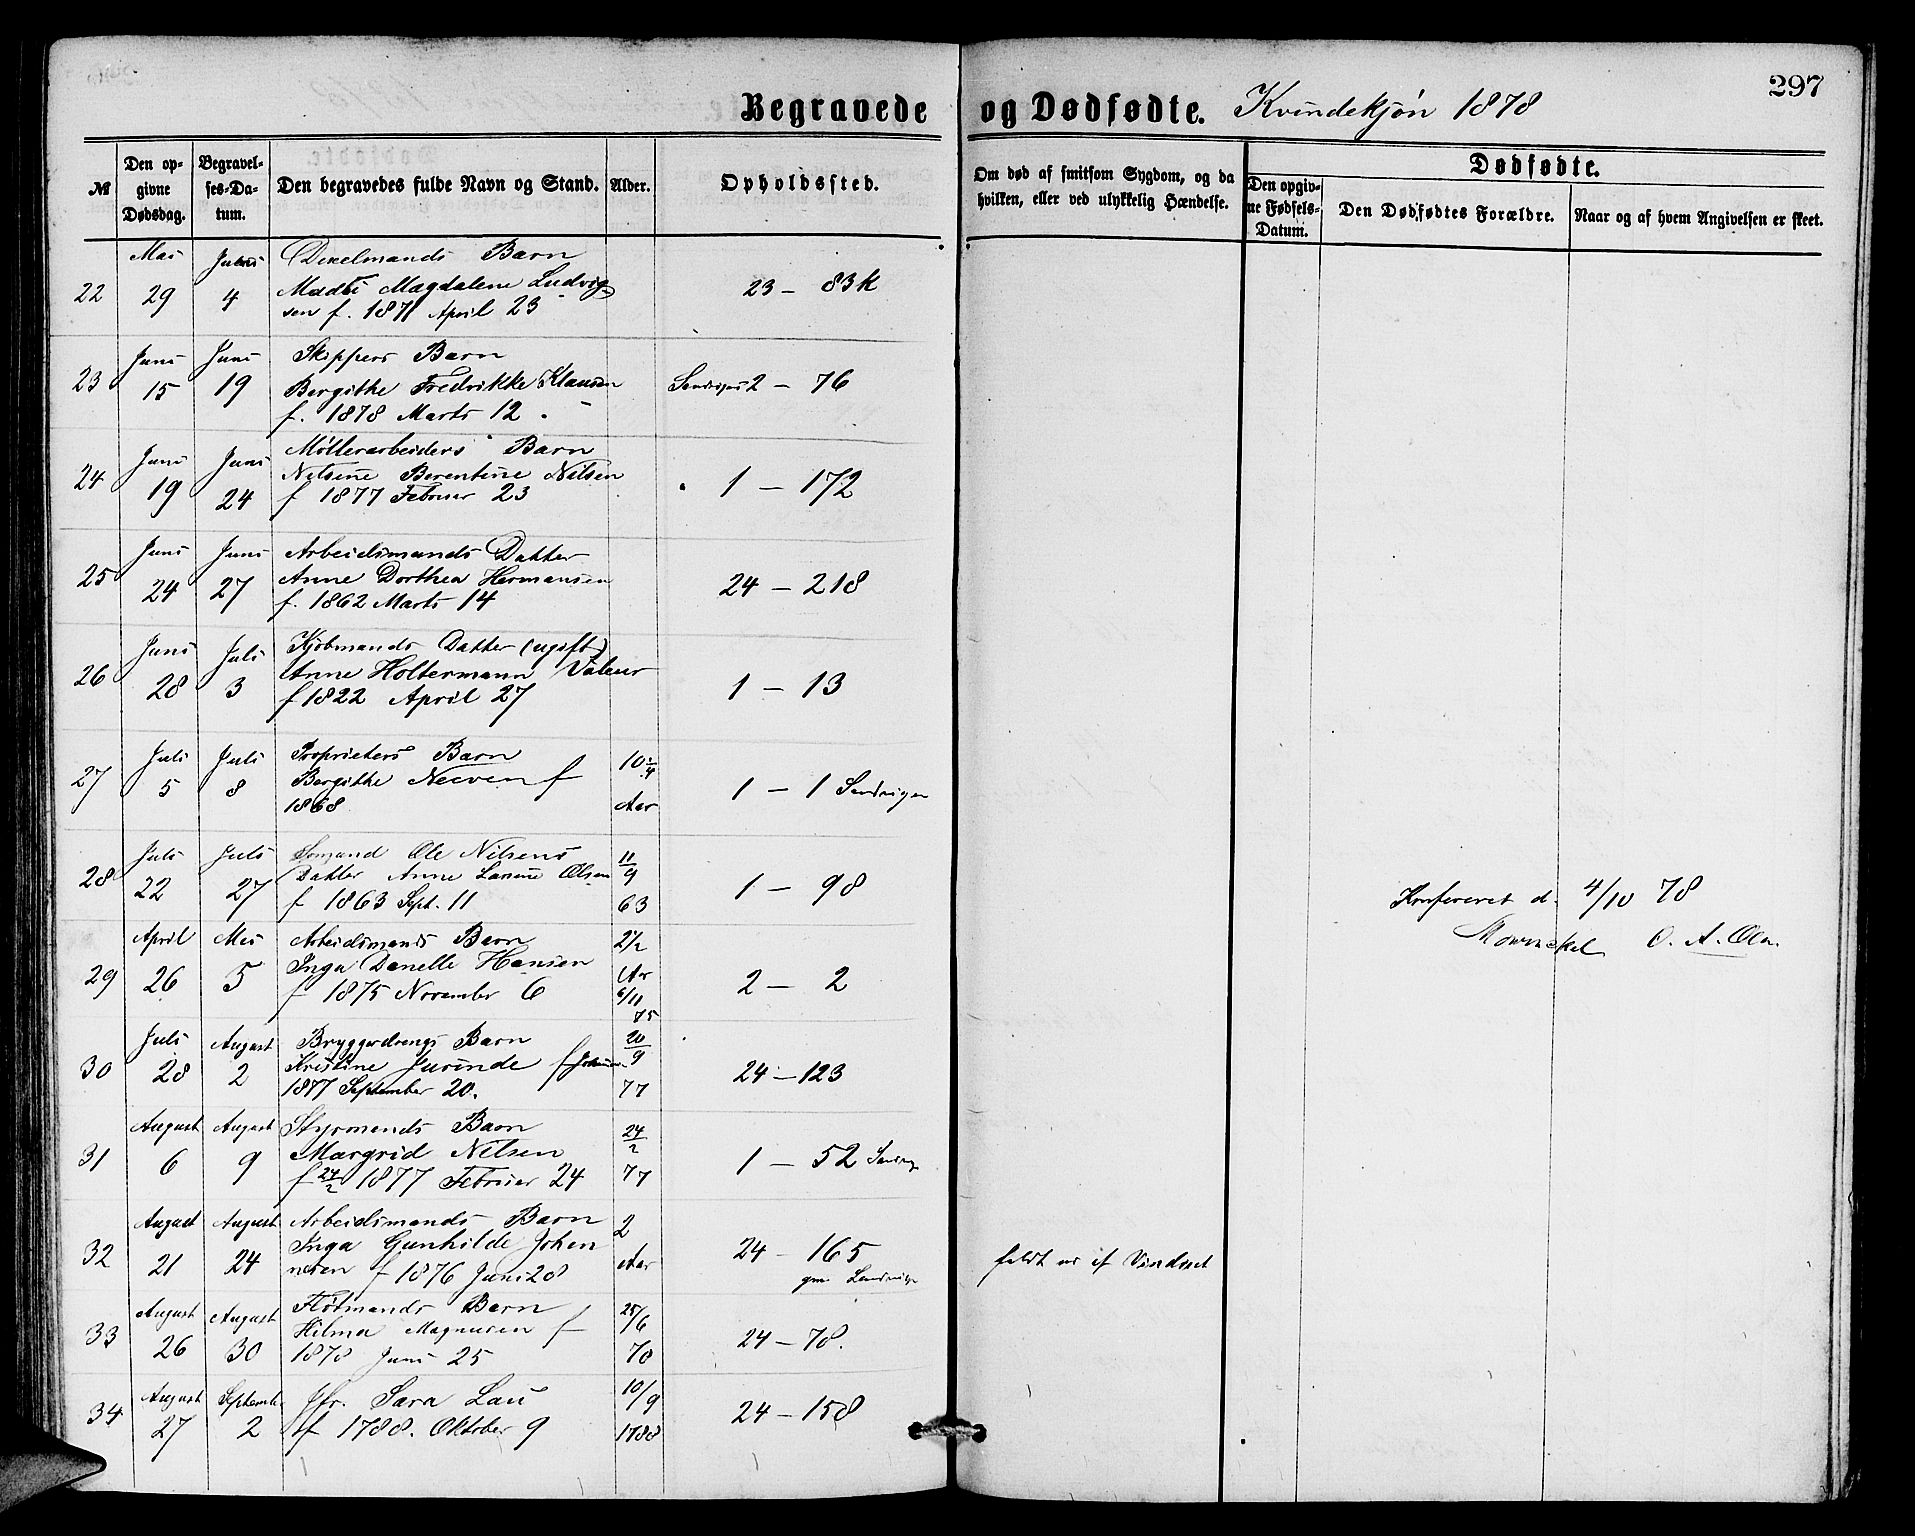 297
Begravede og Dødfødte. Kvindekjøn 1878
№
Den opgivne Dødsdag.
Begravelses-Datum.
Den begravedes fulde Navn og Stand.
Alder.
Opholdssted.
Om død af smitsom Sygdom, og da hvilken, eller ved ulykkelig Hændelse.
Dødfødte.
Den opgivne Fødsels-Datum.
Den Dødfødtes Forældre.
Naar og af hvem Angivelsen er skeet.
22 Mai 29 4 Barn
Magdalene Ludvig
sen f. 1871 April 23
23 – 83k
23 Juni 15 Juni 19 Skippers Barn
Bergithe Fredrikke Klausen
f. 1878 Marts 12
2 – 76
24 Juni 19 Juni 24 Møllerarbeiders Barn
Nilsine Berentine Nilsen
f 1877 Februar 23
1 – 172
25 Juni 24 Juni 27 Arbeidsmands Datter
Anne Dorthea Hermansen
f. 1862 Marts 14
24 – 218
26 Juni 28 Juli 3 Kjøbmands Datter (ugift)
Anne Holtermann Valeur
f 1822 April 27
1 – 13
27 Juli 5 Juli 8 Proprietærs Barn
Bergithe f
1868
10 1/4
Aar
1 – 1 Sandvigen
28 Juli 22 Juli 27 Sømand Ole Nilsens
Datter Anne Olsen
f 1863 Sept. 11
11/9
63
1 – 98
Konfereret d. 4/10 78
O. A.
29 April 26 Mai 5 Arbeidsmands Barn
Inga Danelle Hansen
f 1875 November 6
2 1/2
Aar
6/11
75
2 – 2
30 Juli 28 August 2 Bryggerdrengs Barn
Kristine f
1877 September 20.
20/9
77
24 – 123
31 August 6 August 9 Styrmands Barn
Margrid Nilsen
f 24/2 1877 Februar 24
24/2
77
1 – 52
32 August 21 August 24 Arbeidsmands Barn
Inga Gunhilde Johan
nesen f 1876 Juni 28
2
Aar
24 – 165
faldt ud af Vinduet
33 August 26 August 30 Fløtmands Barn
Hilma Magnusen f
1878 Juni 25
25/6
78
24 – 78.
34 August 27 Septemb. 2 Jfr. Sara Lau
f 1788. Oktober 9
10/9
1788
24 – 158